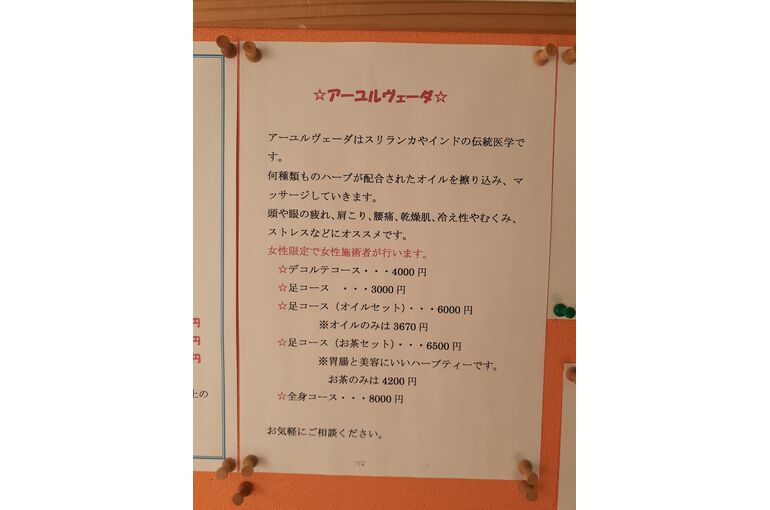 ☆アーユルヴェーダ☆
アーユルヴェーダはスリランカやインドの伝統医学で
す。
何種類ものハーブが配合されたオイルを擦り込み、マ
ッサージしていきます。
頭や眼の疲れ、肩こり、腰痛、乾燥肌、冷え性やむくみ、
ストレスなどにオススメです。
女性限定で女性施術者が行います。
☆デコルテコース・・・4000円
☆足コース　・・・3000円
☆足コース（オイルセット）・・・6000円
※オイルのみは3670円
☆足コース（お茶セット）・・・6500円
※胃腸と美容にいいハーブティーです。
お茶のみは4200円
☆全身コース・・・8000円
お気軽にご相談ください。
円
円
円
上の